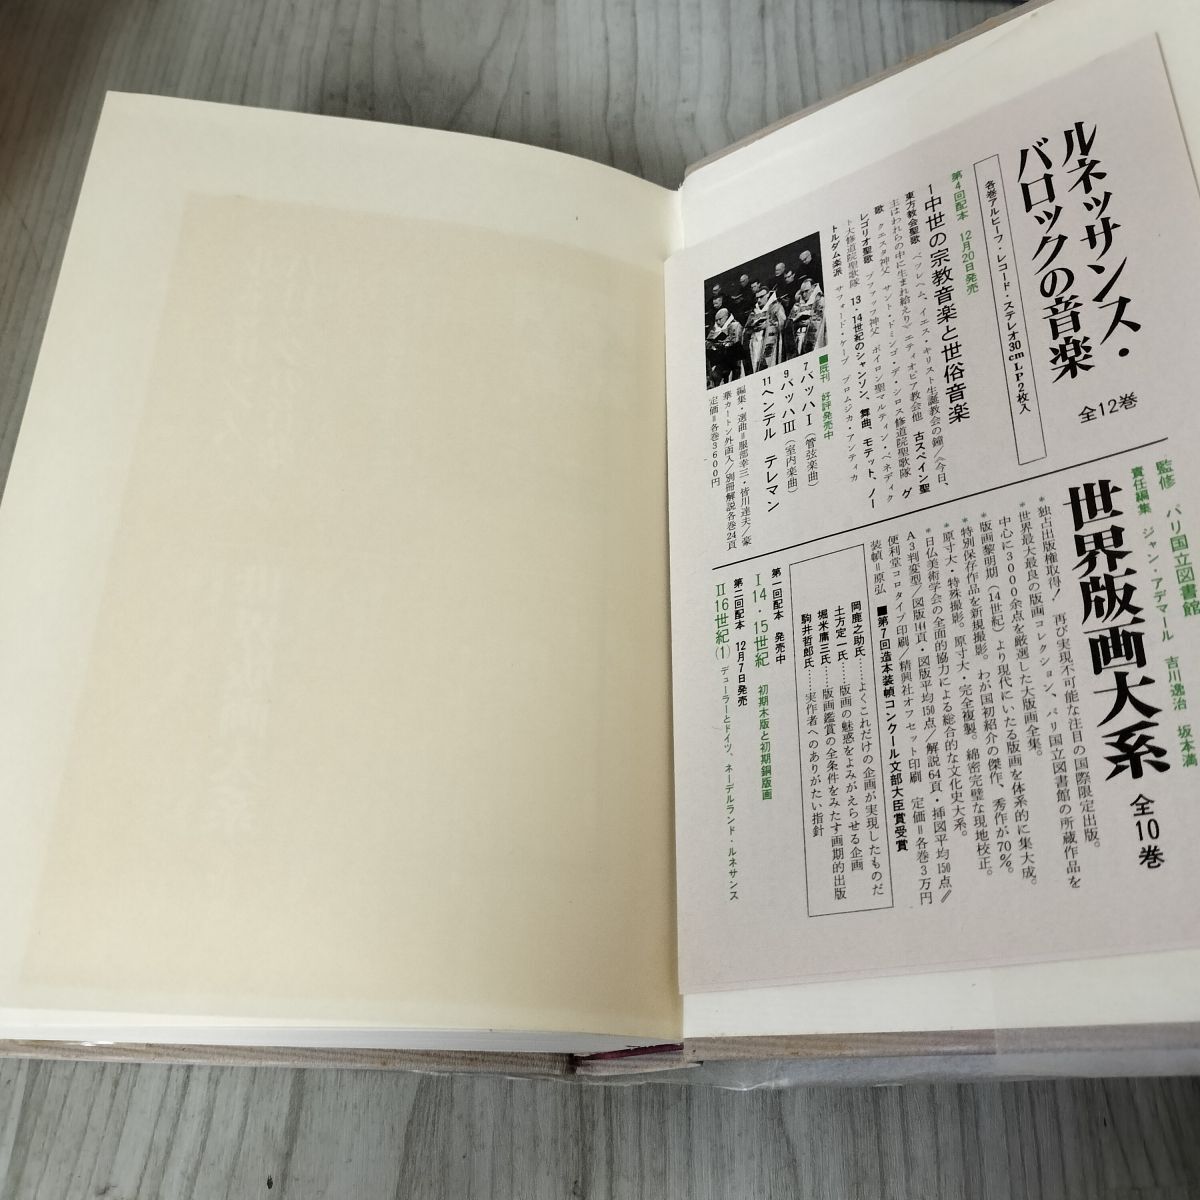 ルネッサンス・
バロックの音楽 全12巻
各巻アルヒーフ・レコード・ステレオ30cmLP2枚入
第4回配本 12月20日発売
1 中世の宗教音楽と世俗音楽
東方教会聖歌 ベツレヘム、イエス・キリスト生誕教会の鐘/《今日、
主はわれらの中に生まれ給えり》エティオピア教会他 古スペイン聖
歌 クエスタ神父 サント・ドミンゴ・デ・シロス修道院聖歌隊 グ
レゴリオ聖歌 プファッフ神父 ボイロン聖マルティン・ベネディク
ト大修道院聖歌隊 13・14世紀のシャンソン、舞曲、モテット、ノー
トルダム楽派 サフォード・ケープ プロムジカ・アンティカ
■既刊 好評発売中
7 バッハⅠ(管弦楽曲)
9 バッハⅢ(室内楽曲)
11 ヘンデル テレマン
編集・選曲=服部幸三・皆川達夫/豪
華カートン外函入/別冊解説各巻24頁
定価=各巻3600円
監修 パリ国立図書館
責任編集 ジャン・アデマール 吉川逸治 坂本満
世界版画大系 全10巻
*独占出版権取得! 再び実現不可能な注目の国際限定出版。
*世界最大最良の版画コレクション、パリ国立図書館の所蔵作品を
中心に3000余点を厳選した大版画全集。
*版画黎明期(14世紀)より現代にいたる版画を体系的に集大成。
*特別保存作品を新規撮影。わが国初紹介の傑作、秀作が70%。
*原寸大・特殊撮影。原寸大・完全複製。綿密完璧な現地校正。
*日仏美術学会の全面的協力による総合的な文化史大系。
A3判変型/図版144頁・図版平均150点/解説64頁・挿図平均150点//
便利堂コロタイプ印刷/精興社オフセット印刷 定価=各巻3万円
装幀=原弘 ■第7回造本装幀コンクール文部大臣賞受賞
岡鹿之助氏……よくこれだけの企画が実現したものだ
土方定一氏……版画の魅惑をよみがえらせる企画
堀米庸三氏……版画鑑賞の全条件をみたす画期的出版
駒井哲郎氏……実作者へのありがたい指針
第一回配本 発売中
Ⅰ 14・15世紀 初期木版と初期銅版画
第二回配本 12月7日発売
Ⅱ 16世紀(1) デューラーとドイツ、ネーデルランド・ルネサンス